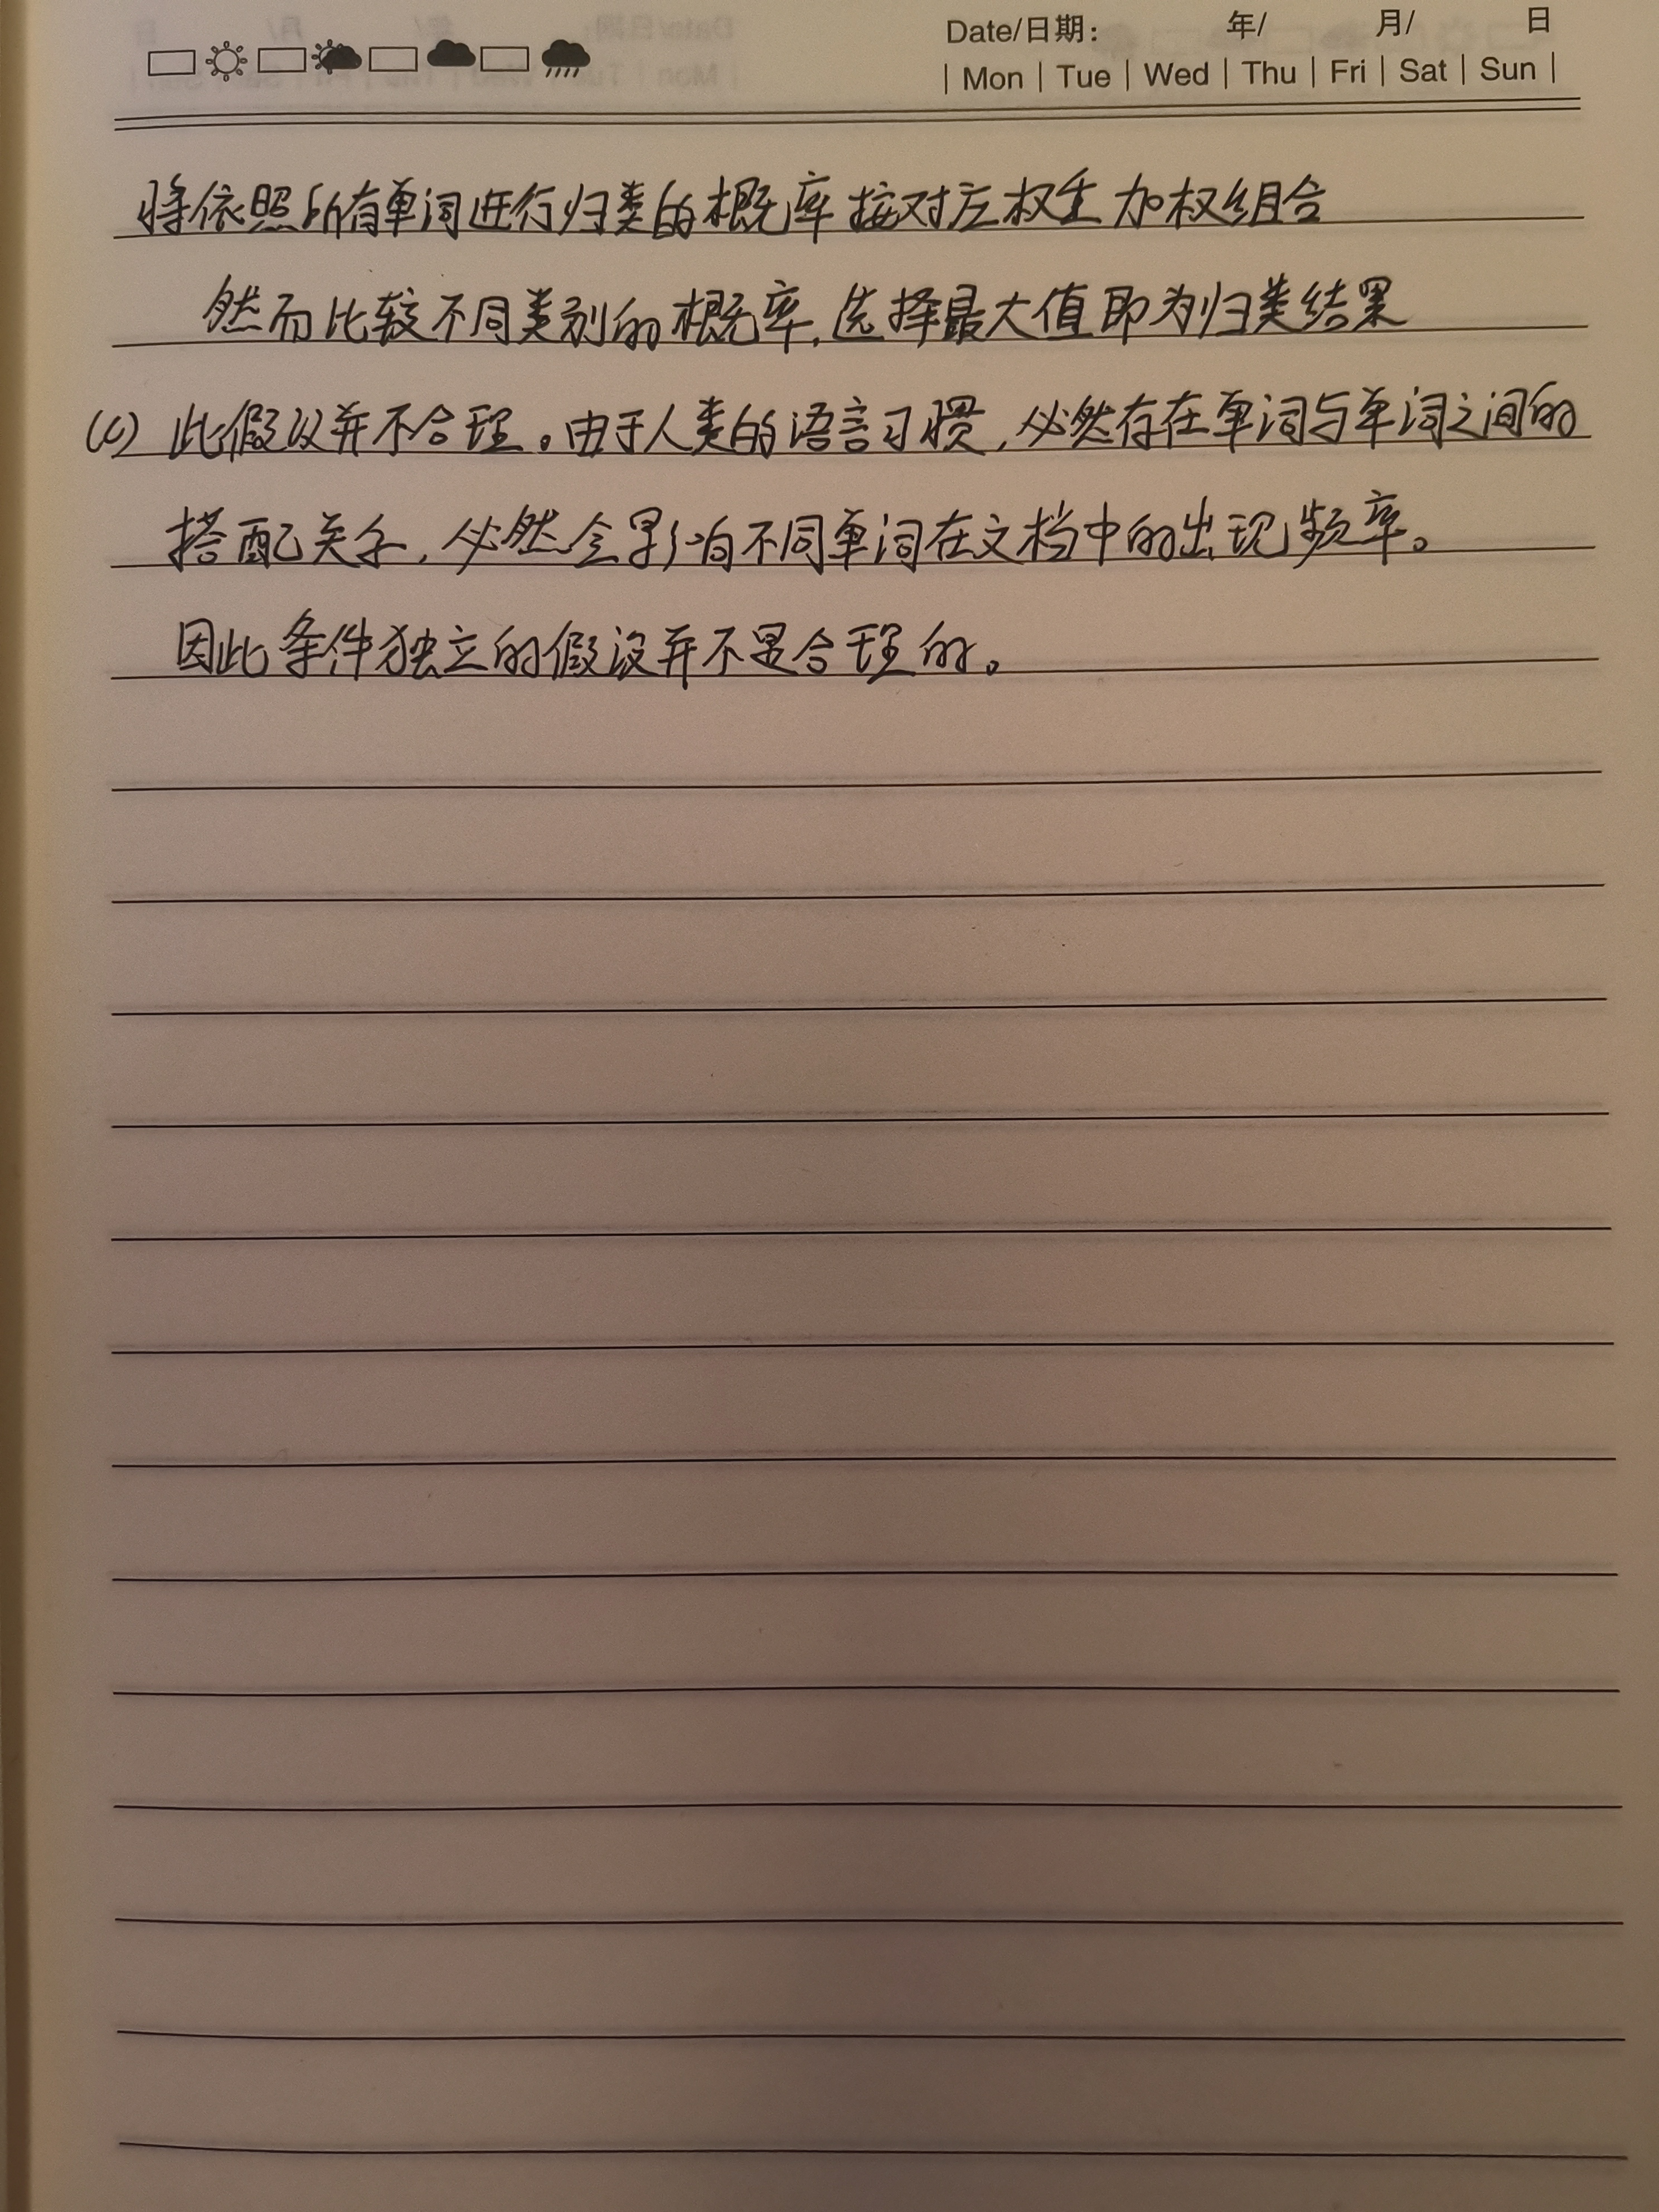 Date/日期: 年/ 月/ 日
| Mon | Tue | Wed | Thu | Fri | Sat | Sun |
将依照所有单词进行归类的概率按对应权重加权组合
然而比较不同类别的概率,选择最大值即为归类结果
(c) 此假议并不合理。由于人类的语言习惯,必然存在单词与单词之间的
搭配关系,必然会影响不同单词在文档中的出现频率。
因此条件独立的假设并不是合理的。